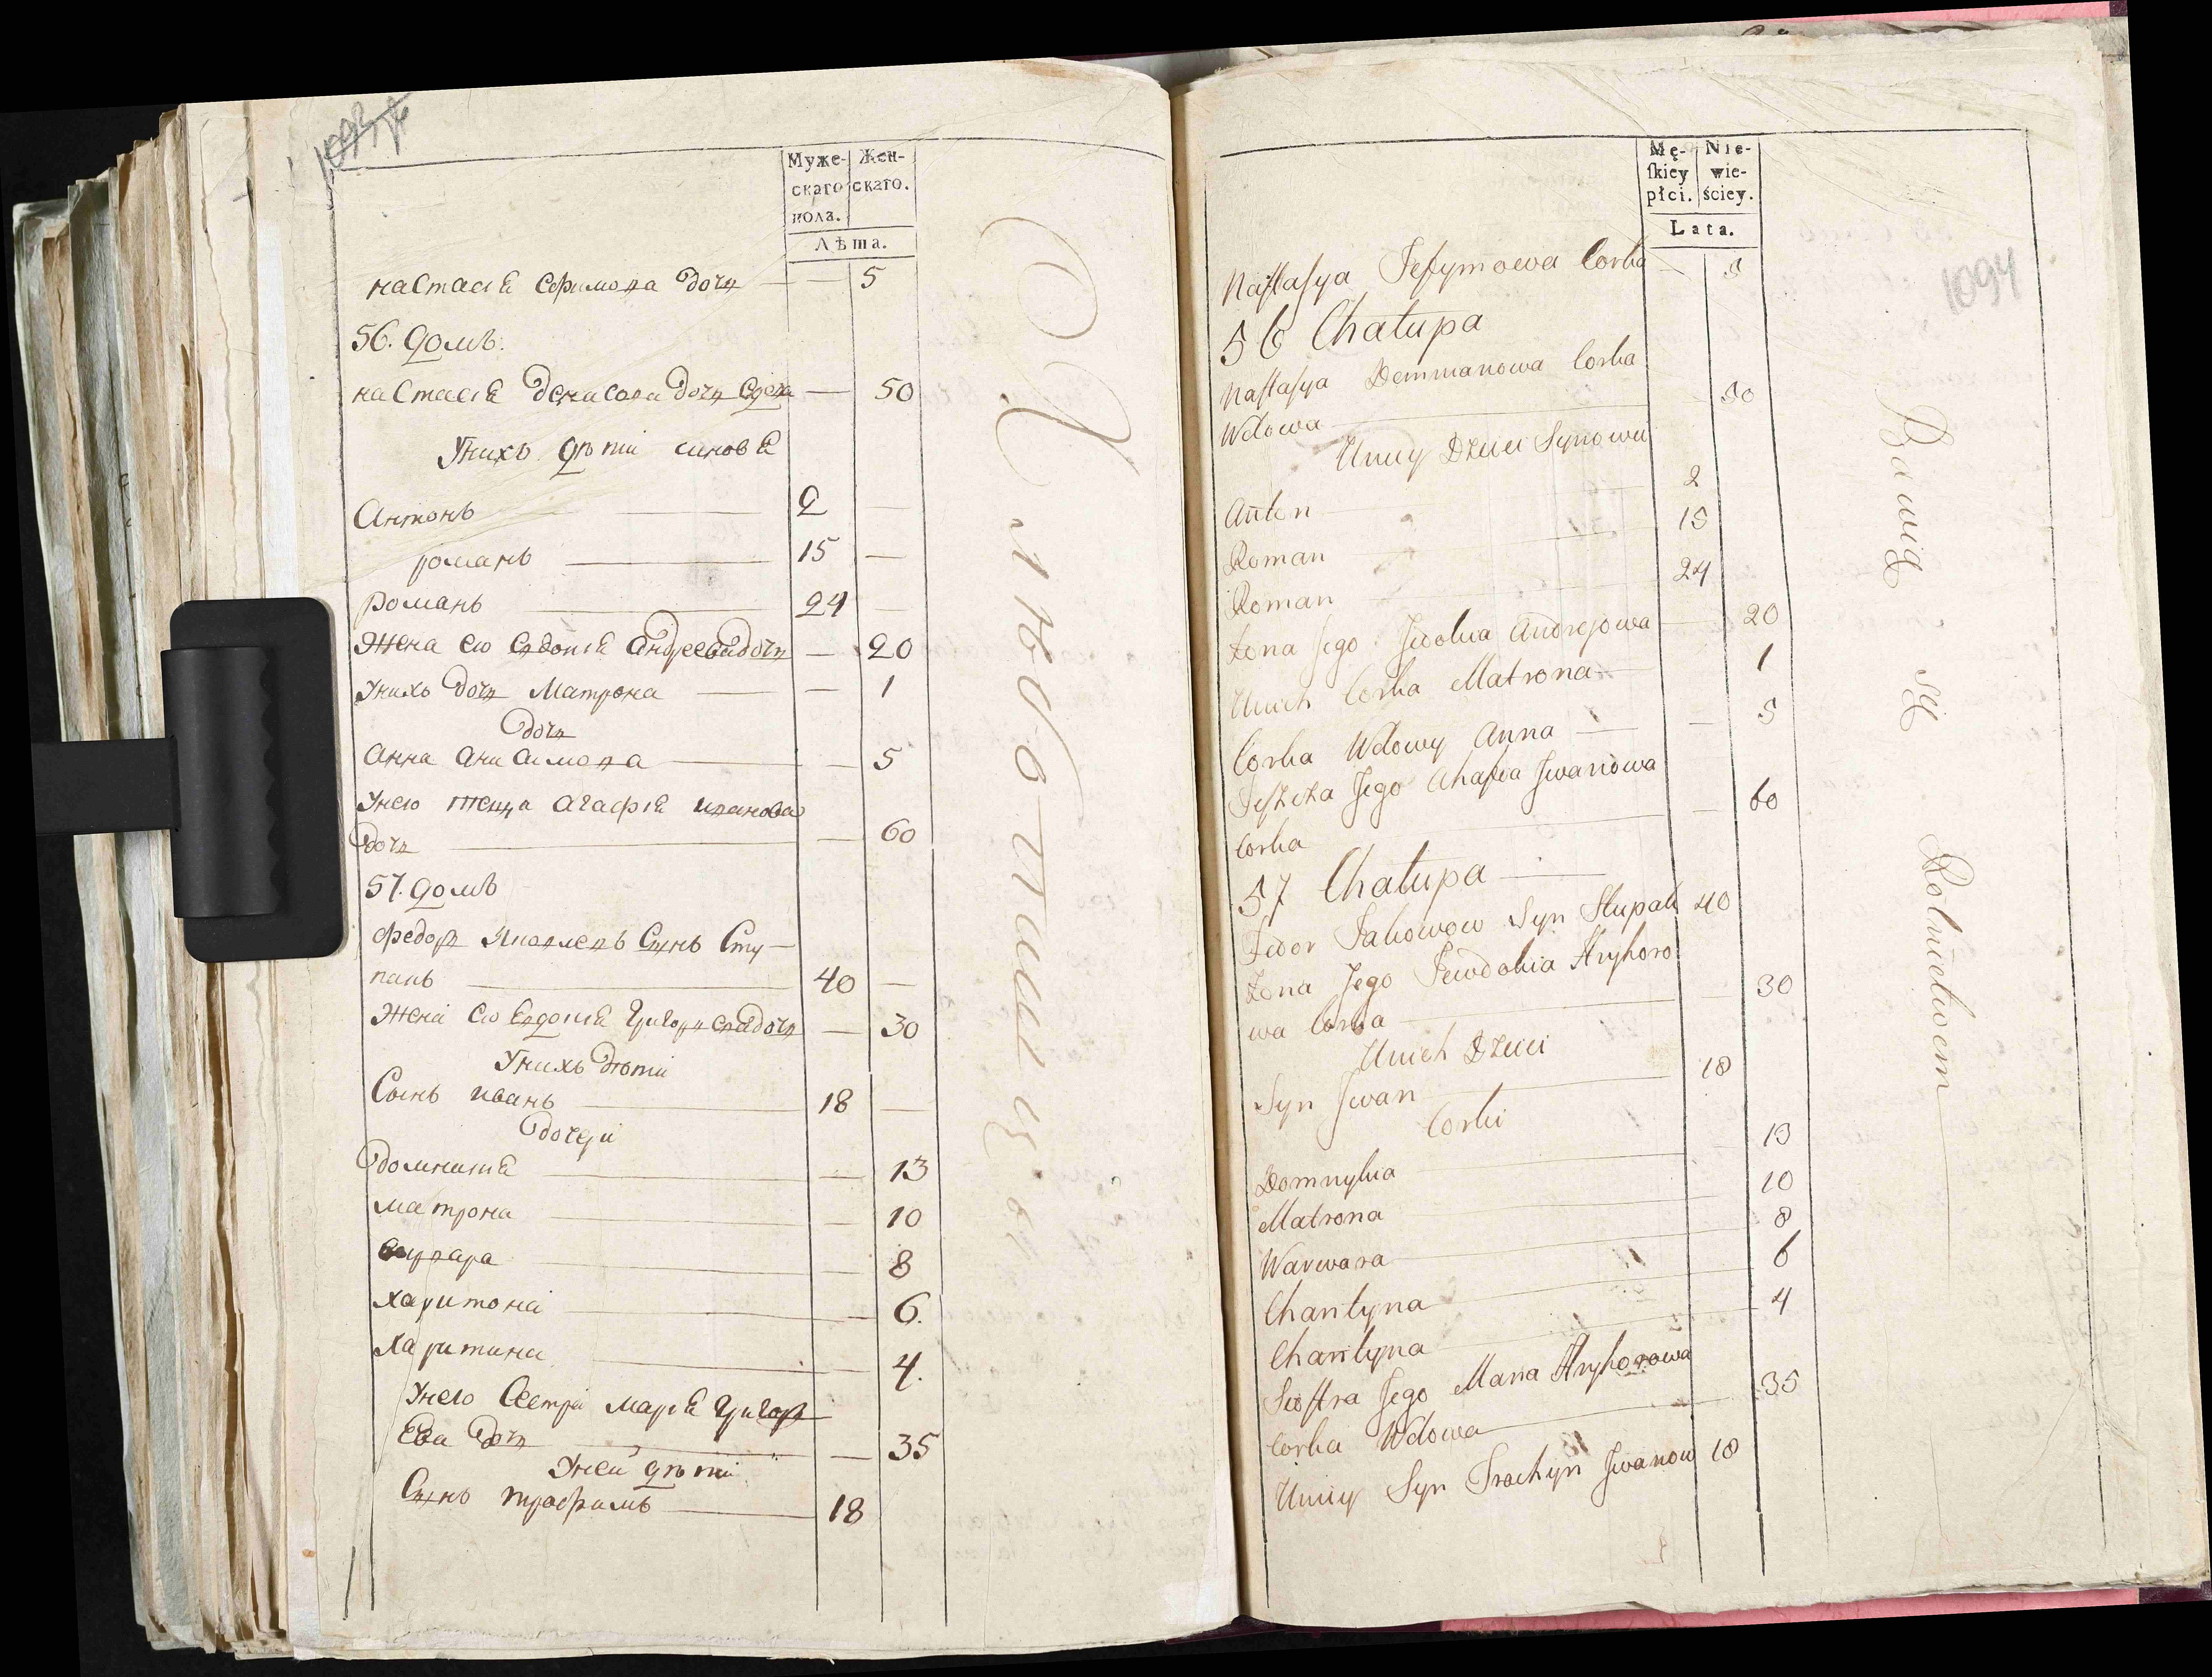 Муже-
скаго
пола.
Жен-
скаго.
Лѣта.
настасіѣ Ефимова дочь — — 5
56. домъ.
настасіѣ денисова дочь вдова — 50
Унихъ дѣти синовѣ
Антонъ — 2
романъ — 15 —
Романъ — 24 —
Жена ею Евдокіѣ Андреева дочь — 20
Унихъ дочь Матрона — — 1
дочь
Анна — — 5
Унею теща агафіѣ иванова
дочь — — 60
57. домъ
федоръ Яковлевъ Сынъ Сту-
пакъ — 40 —
Жена ею Евдокіѣ Григориева дочь — 30
Унихъ дѣти
Сынъ иванъ — 18 —
дочери
домникіѣ — — 13
матрона — — 10
— — 8
харитона — — 6.
Харитина — — 4.
Унего Сестра маріѣ Григор
Ева дочь — — 35
Уней дѣти
Сынъ трофимъ — 18
Mę-
ſkiey
płci.
Nie-
wie-
ściey.
Lata.
1094
Naſtaſya Jefymowa Corka — 5
56 Chałupa
Naſtaſya Demmanowa Corka
Wdowa — — 50
Uniey Dzieci Synowie
Anton — 2
Roman — 15
Roman — 24
Zona Jego Jwdokia Andrejowa — 20
Unich Corka Matrona — 1
Corka Wdowy Anna — — 5
Jego Ahafia Jwanowa
Corka — — 60
57 Chałupa —
Fedor Jakowow Syn Stupak 40
Zona Jego Jewdokia Hryhoro
wa Corka — — 30
Unich Dzieci
Syn Jwan — 18
Corki
Domnykia — — 13
Matrona — — 10
Warwara — — 8
Charityna — 6
Charityna — 4
Sioſtra Jego Maria Hryhorowa
Corka Wdowa — 35
Uniey Syn Trochym Jwanow 18
Bawią się Rolnictwem